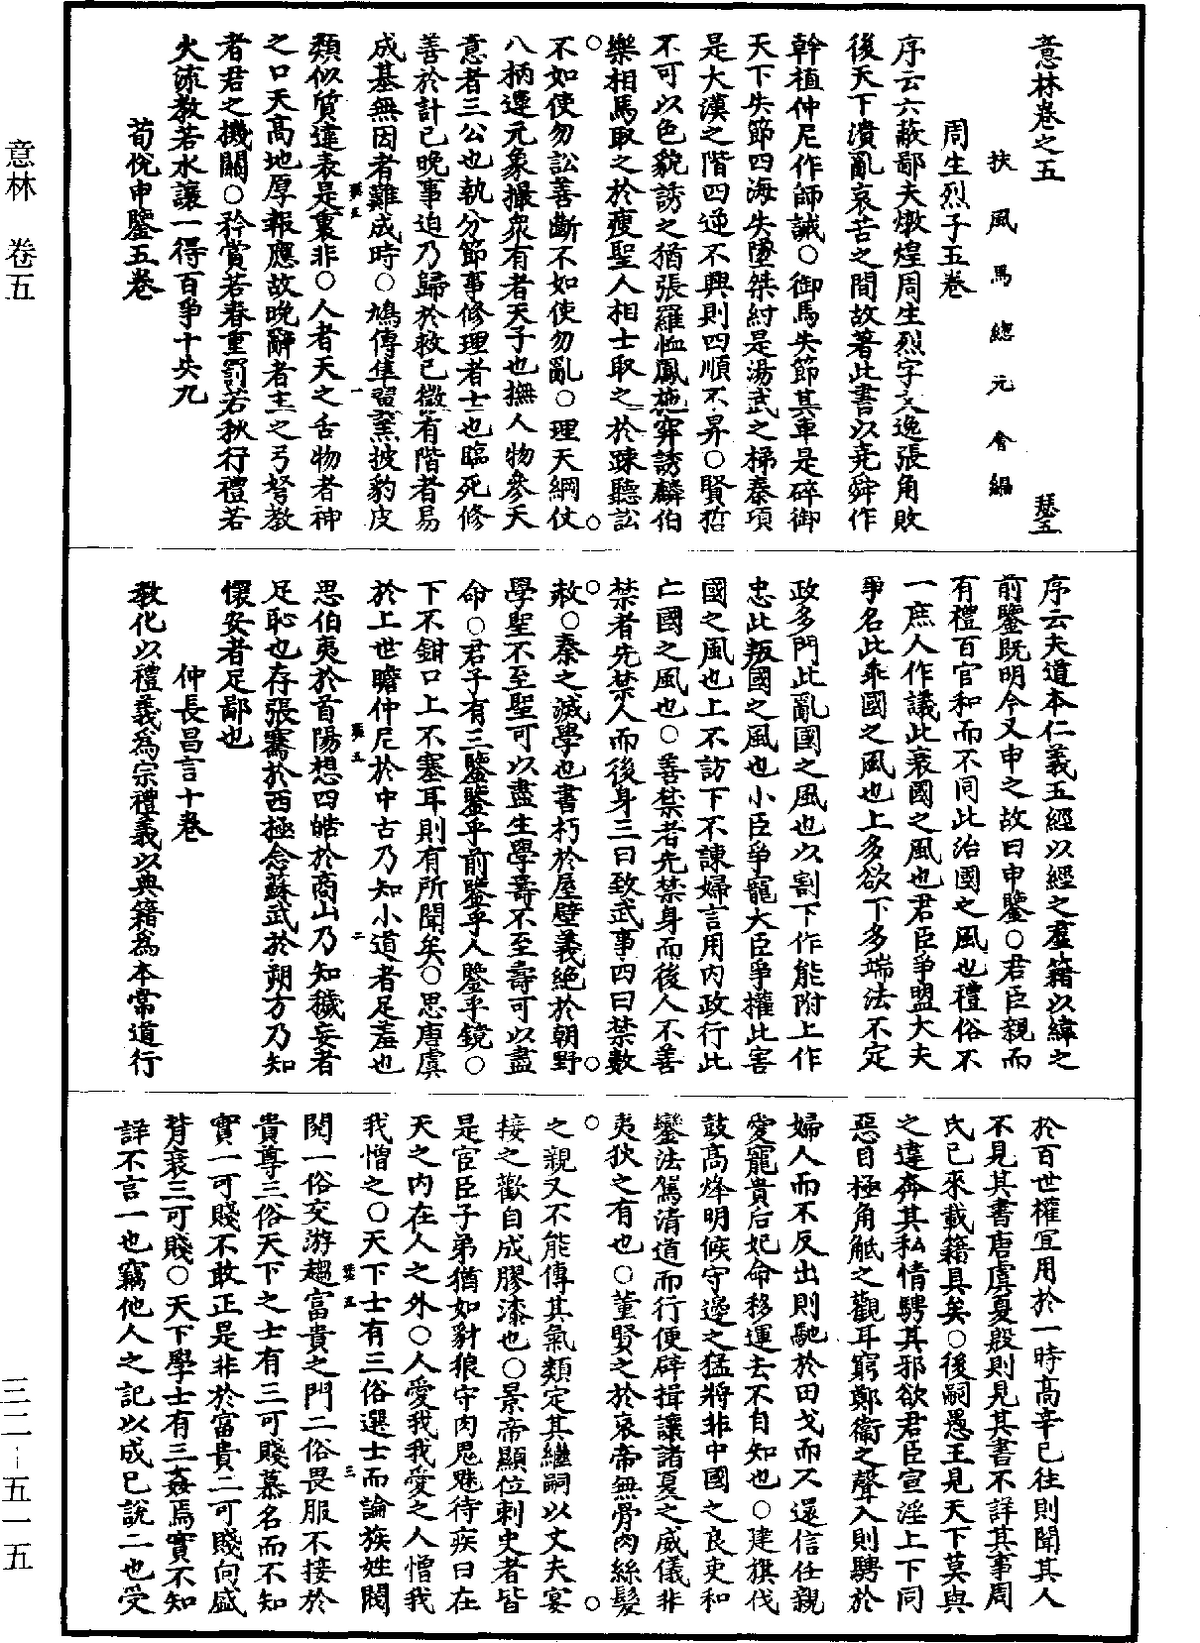 意林卷之五　瑟五
扶風馬總元會編
周生烈子五卷
序云六蔽鄙夫燉煌周生烈字文逸張角敗
後天下潰亂哀苦之間故著此書以堯舜作
幹植仲尼作師誡○御馬失節其車是碎御
天下失節四海失墜桀紂是湯武之梯秦項
是大漢之階四逆不興則四順不昇○賢哲
不可以色貌誘之猶張羅恤鳳施穽誘麟伯
樂相馬取之於瘦聖人相士取之於疎聽訟
不如使勿訟善斷不如使勿亂○理天綱仗
八柄運元象撮衆有者天子也撫人物參天
意者三公也執分節事修理者士也臨死修
善於計已晚事迫乃歸於救已微有階者易
成基無因者難成時○鳩傅隼翼羔披豹皮
類似質違表是裏非○人者天之舌物者神
之口天高地厚報應故晚辭者主之弓弩教
者君之機關○矜賞若春重罰若秋行禮若
火流教若水讓一得百爭十失九
荀悅申鑒五卷
序云夫道本仁義五經以經之羣籍以緯之
前鑒既明今又申之故曰申鑒○君臣親而
有禮百官和而不同此治國之風也禮俗不
一庶人作議此衰國之風也君臣爭盟大夫
爭名此乖國之風也上多欲下多端法不定
政多門此亂國之風也以割下作能附上作
忠此叛國之風也小臣爭寵大臣爭權此害
國之風也上不訪下不諫婦言用內政行此
亡國之風也○善禁者先禁身而後人不善
禁者先禁人而後身三曰致武事四曰禁數
赦○秦之滅學也書朽於屋壁義絕於朝野
學聖不至聖可以盡生學壽不至壽可以盡
命○君子有三鑒鑒乎前鑒乎人鑒乎鏡○
下不鉗口上不塞耳則有所聞矣○思唐虞
於上世瞻仲尼於中古乃知小道者足羞也
思伯夷於首陽想四皓於商山乃知穢妄者
足恥也存張騫於西極念蘇武於朔方乃知
懷安者足鄙也
仲長昌言十卷
教化以禮義爲宗禮義以典籍爲本常道行
於百世權宜用於一時高辛已往則聞其人
不見其書唐虞夏殷則見其書不詳其事周
氏已來載籍具矣○後嗣愚王見天下莫與
之違奔其私情騁其邪欲君臣宣淫上下同
惡目極角觝之觀耳窮鄭衛之聲入則騁於
婦人而不反出則馳於田戈而不還信任親
愛寵貴后妃命移運去不自知也○建旗伐
鼓高烽明候守邊之猛將非中國之良吏和
鑾法駕清道而行便辟揖讓諸夏之威儀非
夷狄之有也○董賢之於哀帝無骨肉絲髮
之親又不能傳其氣類定其繼嗣以丈夫宴
接之歡自成膠漆也○景帝顯位刺史者皆
是宦臣子弟猶如豺狼守肉鬼魅待疾曰在
天之內在人之外○人愛我我愛之人憎我
我憎之○天下士有三俗選士而論族姓閥
閱一俗交游趨富貴之門二俗畏服不接於
貴尊三俗天下之士有三可賤慕名而不知
實一可賤不敢正是非於富貴二可賤向盛
背衰三可賤○天下學士有三姦焉實不知
詳不言一也竊他人之記以成已說二也受
瑟五　一
瑟五　二
瑟五　三
意林　卷五
三二－五一五